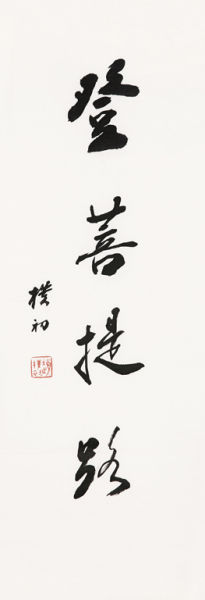 登菩提路
樸初